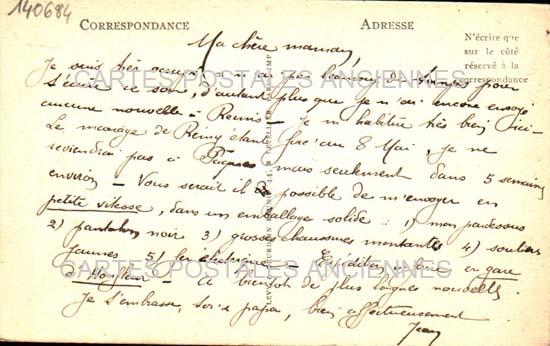 140684
CORRESPONDANCE
ADRESSE
N'écrire que
sur le côté
réservé à la
correspondance
CARTES POSTALES ANCIENNES
Ma chère maman,
Je suis très occupé et n'ai pas beaucoup de temps pour
t'écrire ce soir, d'autant plus que je n'ai encore envoyé
aucune nouvelle à Rennes - je m'habitue très bien ici -
Le mariage de Rémy étant fixé au 8 Mai, je ne
reviendrai pas à Pâques mais seulement dans 5 semaines
environ - Vous serait il possible de m'envoyer en
petite vitesse, dans un emballage solide : 1) mon pardessus
2) pantalon noir 3) grosses chaussures montantes 4) souliers
jaunes 5) fer électrique. Expédier en gare
Honfleur - A bientôt de plus longues nouvelles
Je t'embrasse, ainsi papa, bien affectueusement
Jean
CARTES POSTALES ANCIENNES